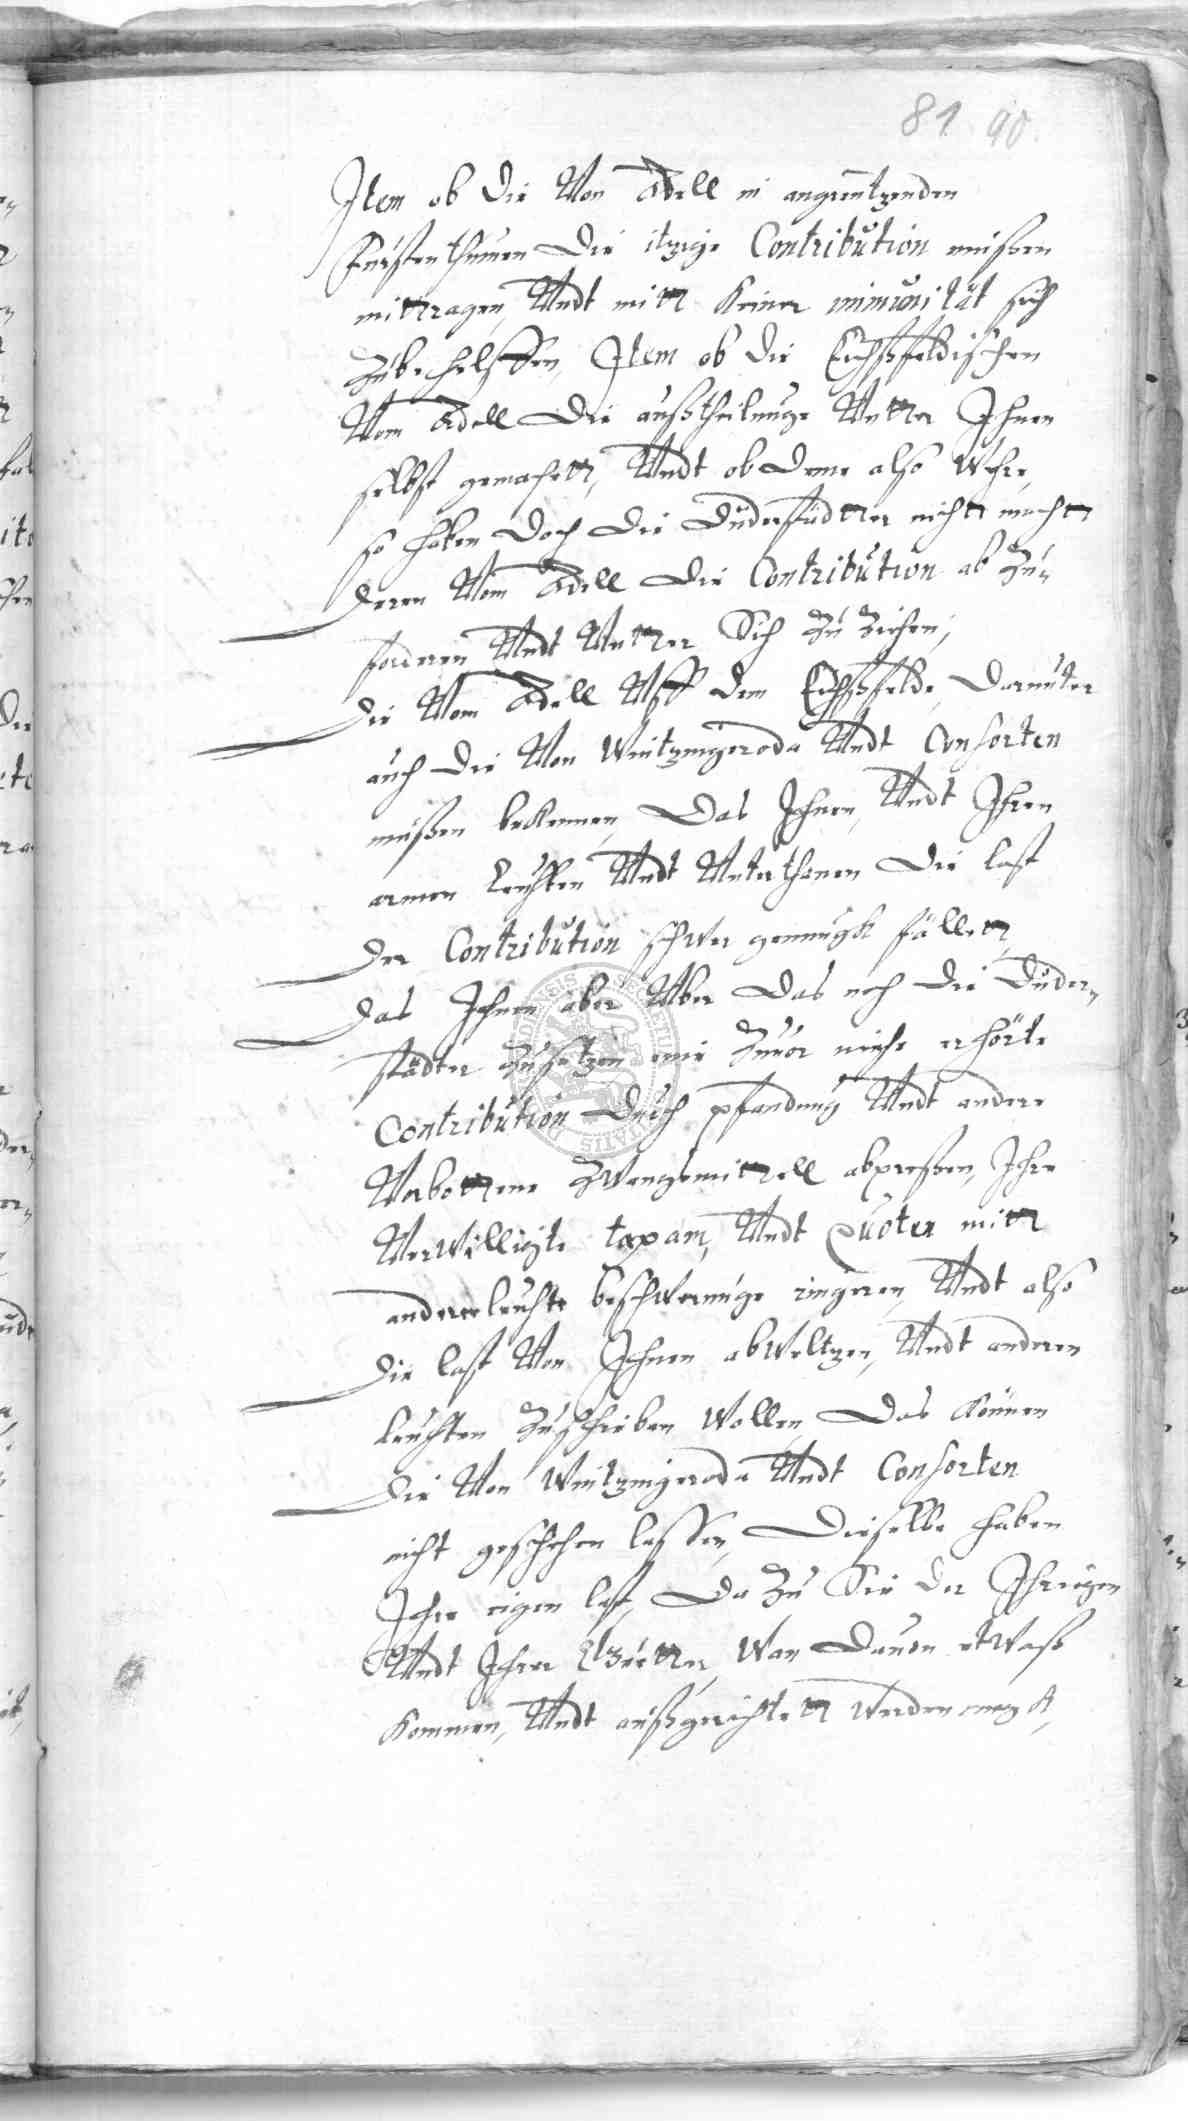 81 90
Item ob die Von Adell in angrentzenden
Fürstenthumen die itzige Contribution müßen
mittragen, Undt mitt Keiner immunität sich
Zübehelffen, Item ob die Eichßfeldischen
Vom Adell die außtheilunge Untter Ihnen
selbst gemachtt, Undt ob deme also Wehre,
so haben doch die Düderstädtter nicht macht
deren Vom Adell die Contribution ab Zü-
forderen Undt Untter Sich Zü Ziehen,
Die Vom Adell Uff dem Eichßfelde, darunter
auch die Von Wintzingeroda Undt Consorten
müßen bekennen, Das Ihnen, Undt Ihren
armen Leuhten Undt Unterthanen die last
der Contribution schwer genungk fället,
Das Ihnen aber Uber das noch die Düder-
städter Züsetzen eine Zuvor niehe erhörte
Contribution durch pfandung Undt andere
Verbottene Zwangsmittell abpreßen, Ihre
Verwilligte taxam, Undt Quoten mitt
andererleuhte beschwerunge ringeren, Undt also
die last Von Ihnen abweltzen, Undt anderen
leuhten Züschieben wollen, Das Können
die Von Wintzingeroda Undt Consorten
nicht geschehen laßen, Dieselbe haben
Ihre eigen last, Da Zü Sie der Ihrigen
Undt Ihrer Gütter, Wan davon etwaß
Kommen, Undt außgerichtett werden magk,